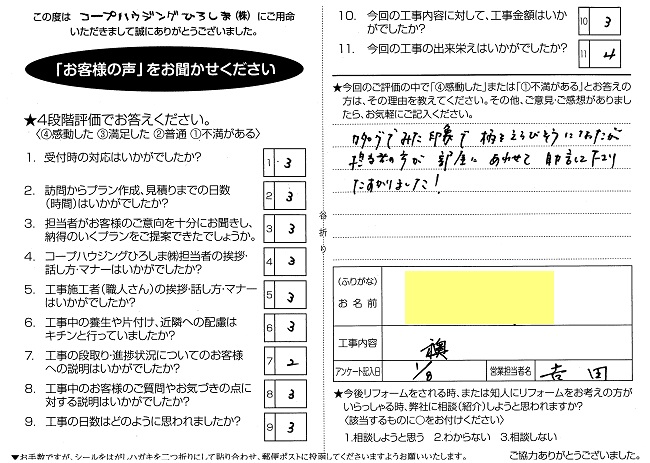 この度は コープハウジングひろしま(株) にご用命
いただきまして誠にありがとうございました。
「お客様の声」をお聞かせください
★4段階評価でお答えください。
〈④感動した ③満足した ②普通 ①不満がある〉
1. 受付時の対応はいかがでしたか? 1 3
2. 訪問からプラン作成、見積りまでの日数
(時間)はいかがでしたか? 2 3
3. 担当者がお客様のご意向を十分にお聞きし、
納得のいくプランをご提案できたでしょうか。 3 3
4. コープハウジングひろしま㈱担当者の挨拶・
話し方・マナーはいかがでしたか? 4 3
5. 工事施工者(職人さん)の挨拶・話し方・マナー
はいかがでしたか? 5 3
6. 工事中の養生や片付け、近隣への配慮は
キチンと行っていましたか? 6 3
7. 工事の段取り・進捗状況についてのお客様
への説明はいかがでしたか? 7 2
8. 工事中のお客様のご質問やお気づきの点に
対する説明はいかがでしたか? 8 3
9. 工事の日数はどのように思われましたか? 9 3
▼お手数ですが、シールをはがしハガキを二つ折りにして貼り合わせ、郵便ポストに投函してくださいますようお願いいたします。
谷折り
10. 今回の工事内容に対して、工事金額はいか
がでしたか? 10 3
11. 今回の工事の出来栄えはいかがでしたか? 11 4
★今回のご評価の中で「④感動した」または「①不満がある」とお答えの
方は、その理由を教えてください。その他、ご意見・ご感想がありまし
たら、お気軽にご記入ください。
カタログでみた印象で柄をえらびそうになったが
担当者の方が部屋にあわせて助言して下さり
たすかりました!
(ふりがな)
お名前
工事内容 襖
アンケート記入日 1/8 営業担当者名 吉田
★今後リフォームをされる時、または知人にリフォームをお考えの方が
いらっしゃる時、弊社に相談(紹介)しようと思われますか?
〈該当するものに○をお付けください〉
1.相談しようと思う 2.わからない 3.相談しない
ご協力ありがとうございました。